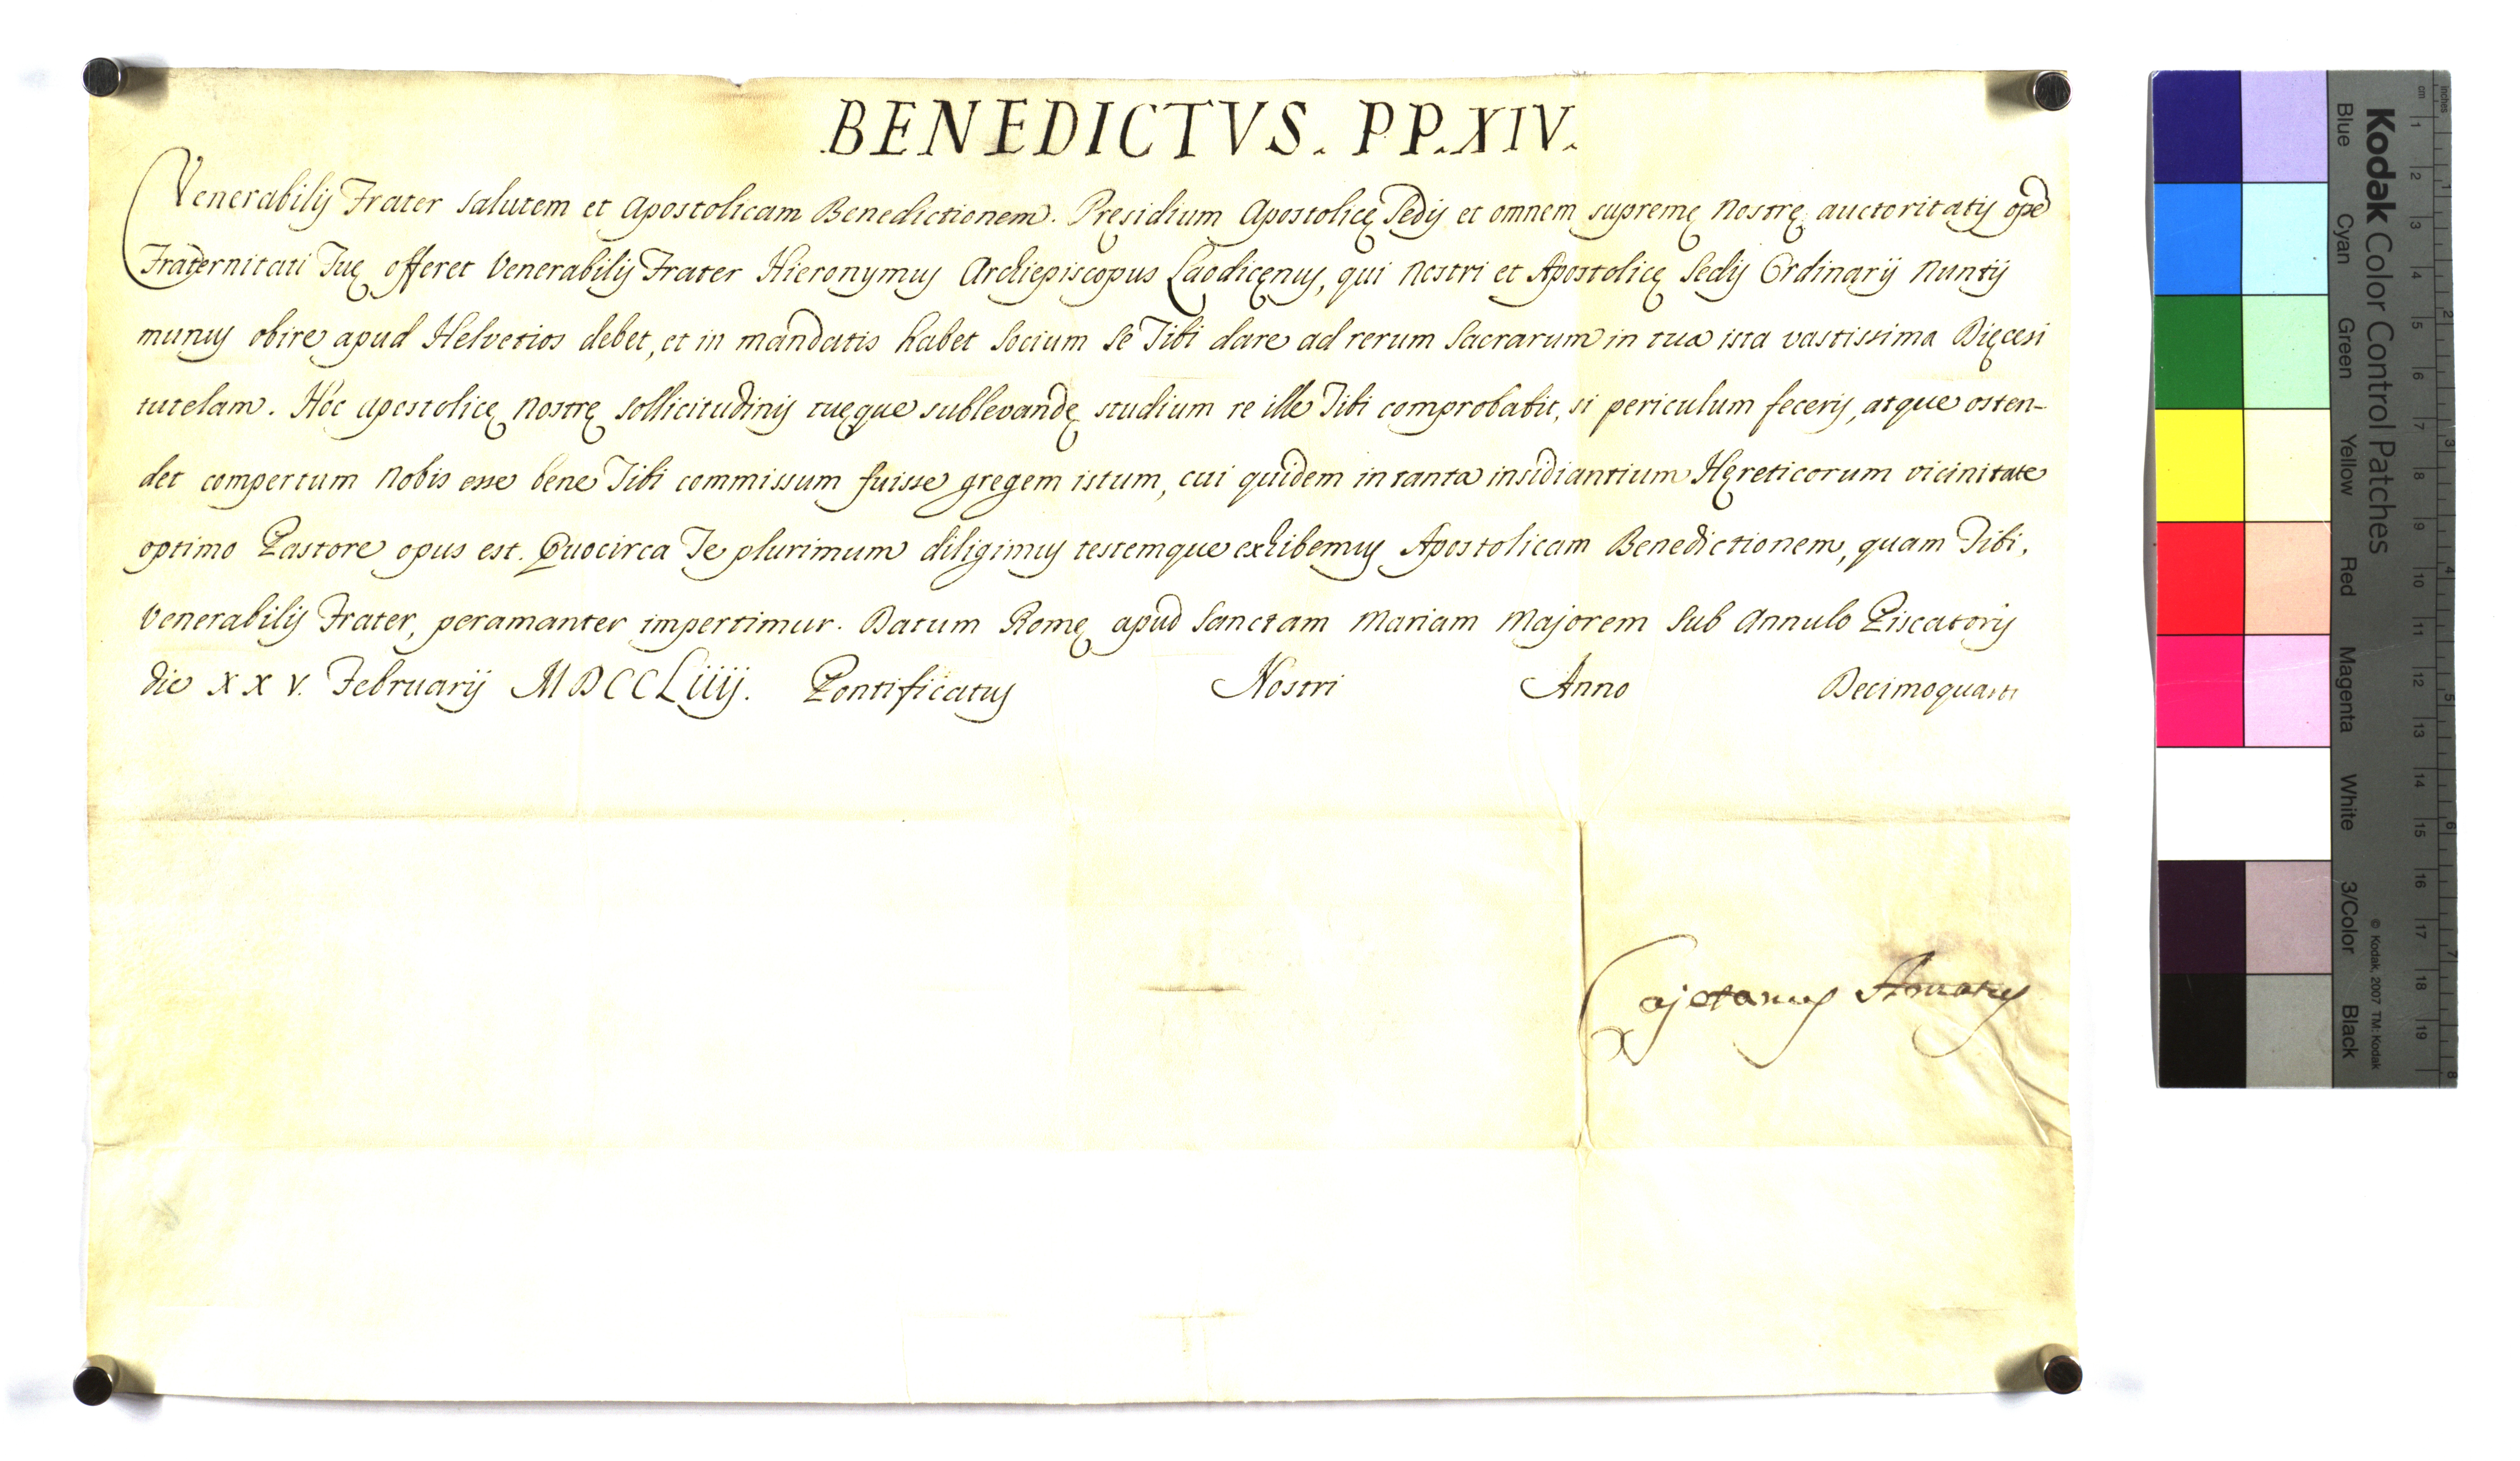 BENEDICTVS. PP. XIV.
Venerabilis Frater salutem et Apostolicam Benedictionem. Pręsidium Apostolicę Sedis et omnem supremę Nostrę auctoritatis opē
Fraternitati Tuę offeret Venerabilis Frater Hieronymus Archiepiscopus Laodicęnus, qui Nostri et Apostolicę Sedis Ordinarij Nuntij
munus obire apud Helvetios debet, et in mandatis habet Socium Se Tibi dare ad rerum Sacrarum in tua ista vastissima Dięcesi
tutelam. Hoc apostolicę Nostrę sollicitudinis tuęque sublevandę studium re ille Tibi comprobabit, si periculum feceris, atque osten-
det compertum Nobis esse bene Tibi commissum fuisse gregem istum, cui quidem in tanta insidiantium Hęreticorum vicinitate
optimo Pastore opus est. Quocirca Te plurimum diligimus testemque exhibemus Apostolicam Benedictionem, quam Tibi,
Venerabilis Frater, peramanter impertimur. Datum Romę apud Sanctam Mariam Majorem Sub Annulo Piscatoris
die XXV. Februarij MDCCLiiij. Pontificatus Nostri Anno Decimoquarto
Cajetanus Amatus
Kodak Color Control Patches
Blue Cyan Green Yellow Red Magenta White 3/Color Black
© Kodak, 2007 TM: Kodak
cm 1 2 3 4 5 6 7 8 9 10 11 12 13 14 15 16 17 18 19
inches 1 2 3 4 5 6 7 8